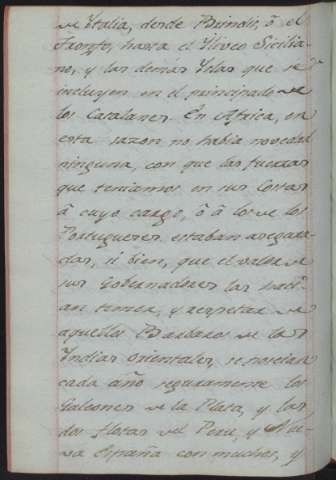 de Ytalia, desde Brindis, ó el
Tronto, hasta el Ylireo Sicilia-
no, y las demás Yslas que se
incluyen en el principado de
los Catalanes. En Africa, en
esta sazon no había novedad
ninguna, con que las fuerzas
que teniamos en sus Costas
á cuyo cargo, ó á los de los
Portugueses estaban asegura-
das, si bien, que el valor de
sus Gobernadores las hací-
an temer, y respetar de
aquellos Barbaros de las
Yndias orientales, se
cada año seguramente los
Galeones de la Plata, y las
dos flotas del Peru, y Nue-
va España con muchos, y